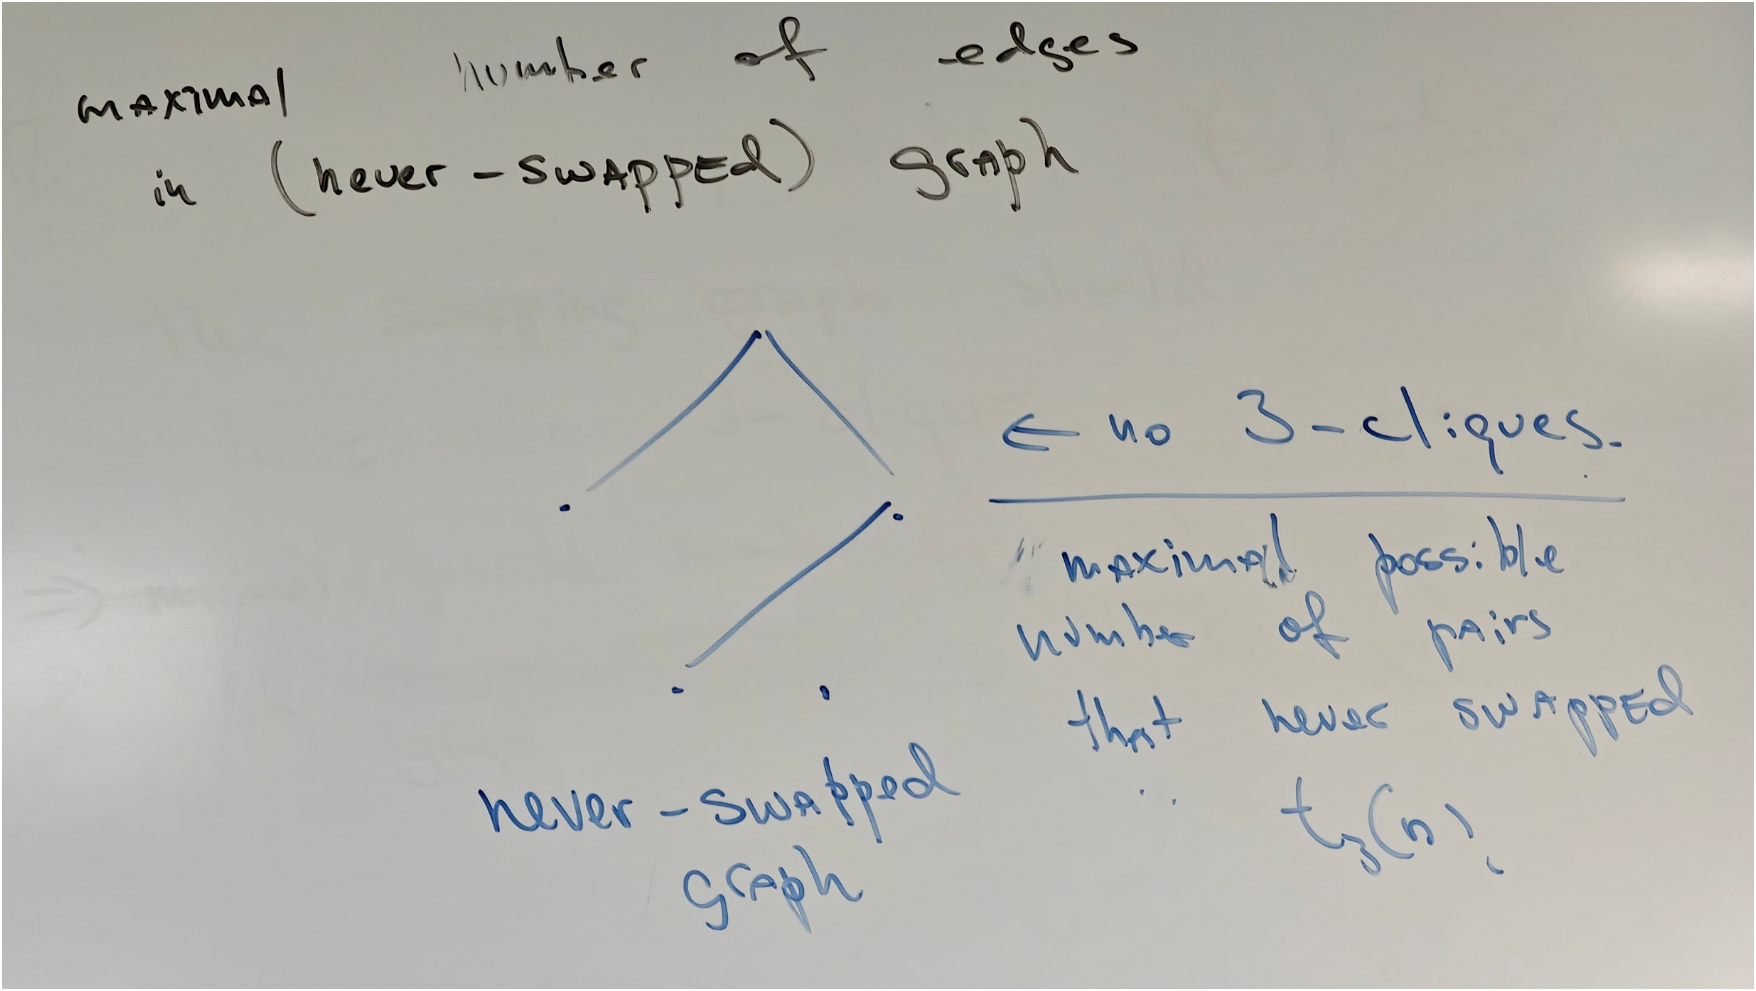 maximal number of edges
in (never-swapped) graph
← no 3-cliques.
maximal possible
number of pairs
that never swapped
t₃(n).
never-swapped
graph